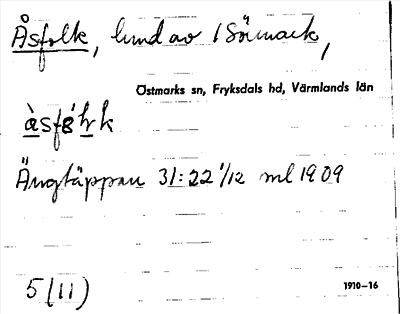 Åsfolk, hund av 1 Sörmark,
Östmarks sn, Fryksdals hd, Värmlands län
àsfȣ́hrk
Ängtäppan 31:22 1/12 ml 1909
5(11)
1910–16